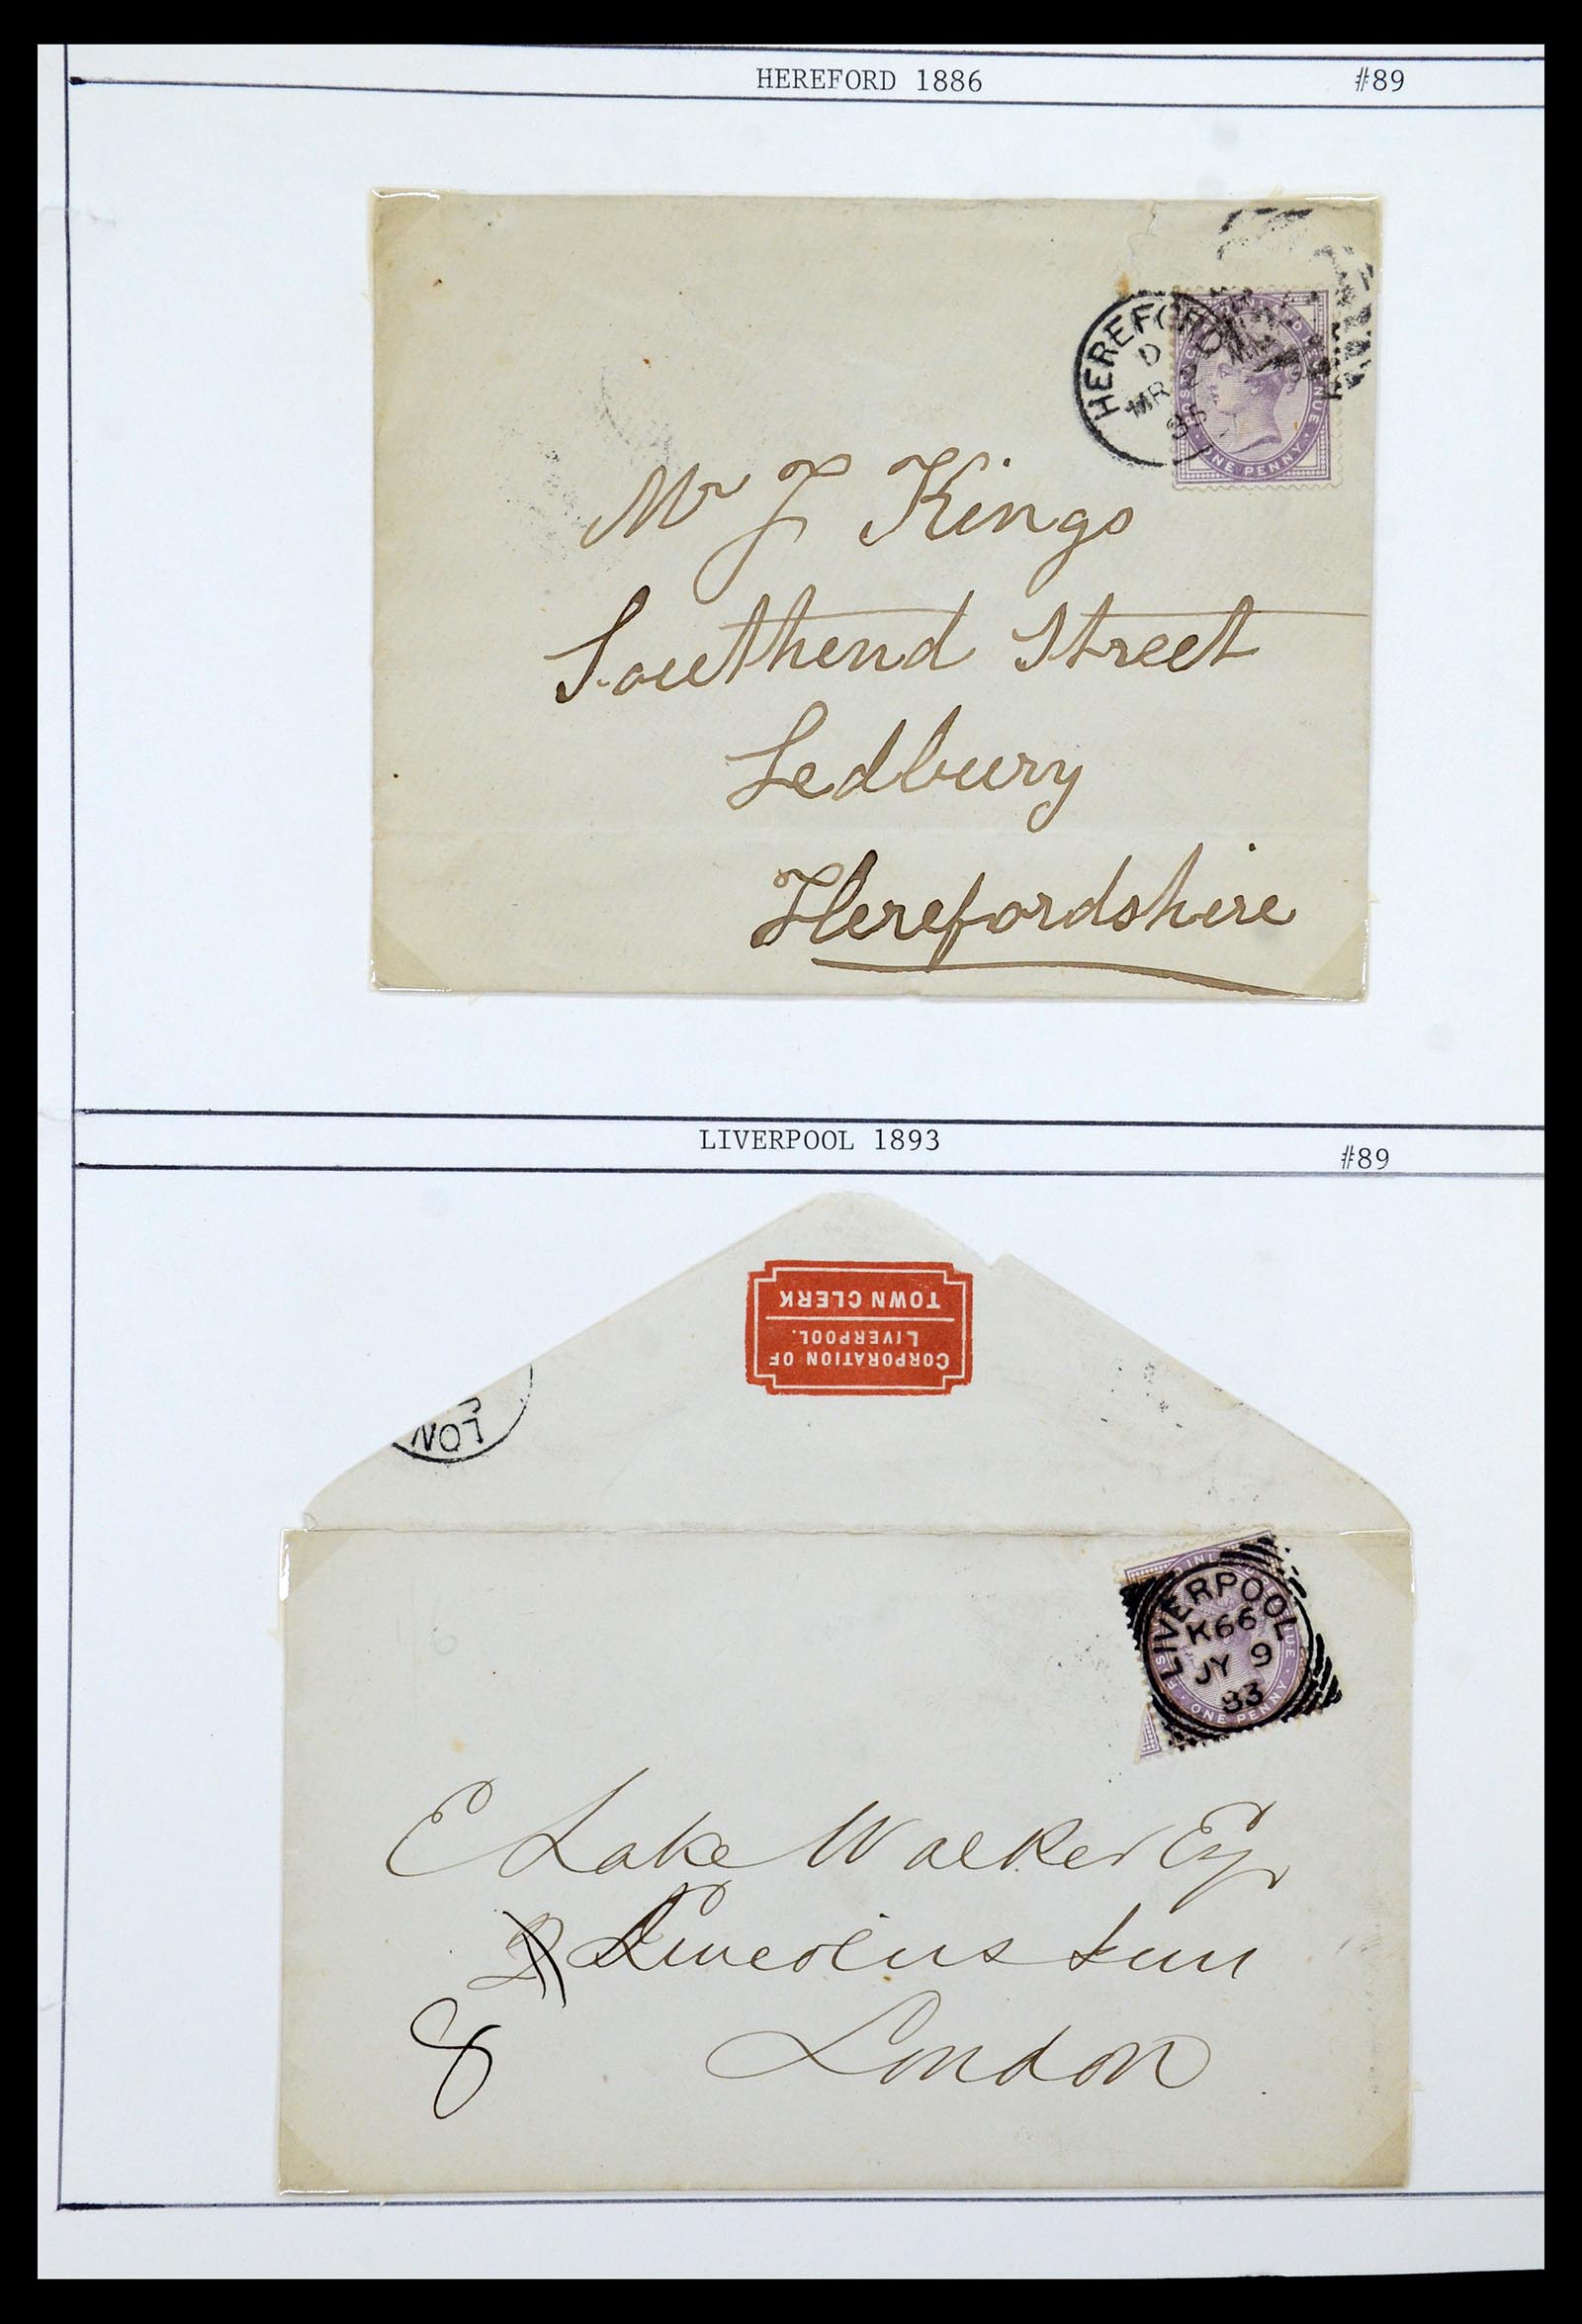 HEREFORD 1886 #89
HEREFORD
D
MR
ONE PENNY
Mr J Kings
Southend Street
Ledbury
Herefordshire
LIVERPOOL 1893
#89
CORPORATION OF
LIVERPOOL.
TOWN CLERK
LON
LIVERPOOL
K66
JY 9
93
ONE PENNY
E Lake Walker Esq
Lincolns Inn
8 London